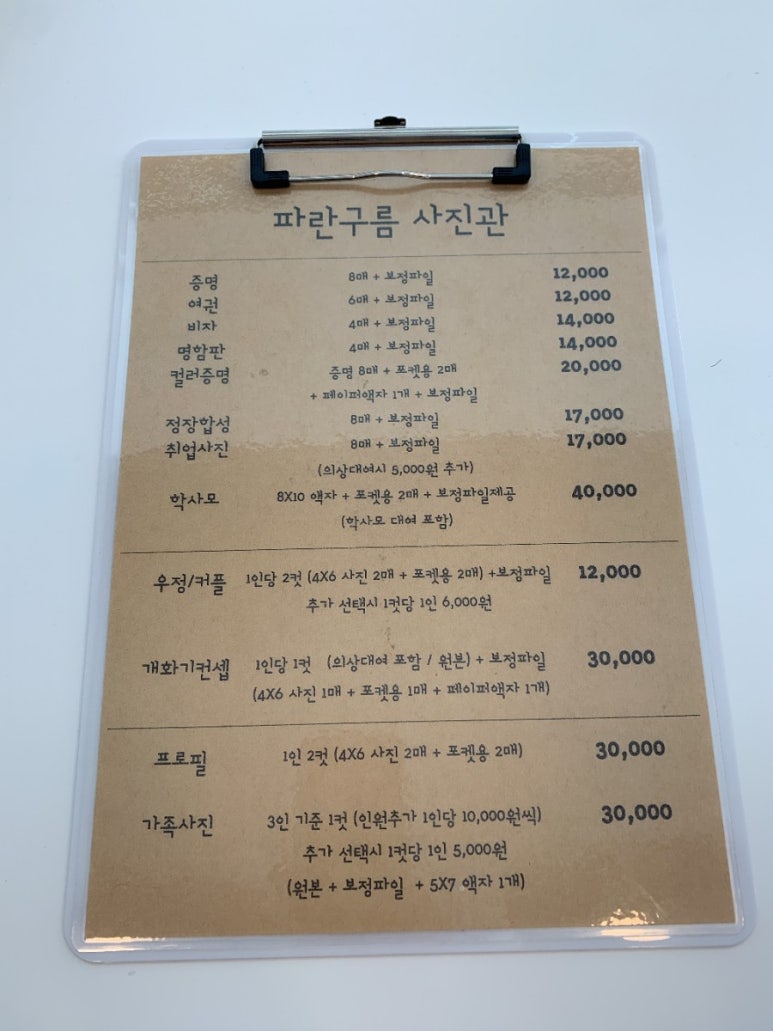 파란구름 사진관
증명 8매 + 보정파일 12,000
여권 6매 + 보정파일 12,000
비자 4매 + 보정파일 14,000
명함판 4매 + 보정파일 14,000
컬러증명 증명 8매 + 포켓용 2매 20,000
+ 페이퍼액자 1개 + 보정파일
정장합성 8매 + 보정파일 17,000
취업사진 8매 + 보정파일 17,000
(의상대여시 5,000원 추가)
학사모 8X10 액자 + 포켓용 2매 + 보정파일제공 40,000
(학사모 대여 포함)
우정/커플 1인당 2컷 (4X6 사진 2매 + 포켓용 2매) +보정파일 12,000
추가 선택시 1컷당 1인 6,000원
개화기컨셉 1인당 1컷 (의상대여 포함 / 원본) + 보정파일 30,000
(4X6 사진 1매 + 포켓용 1매 + 페이퍼액자 1개)
프로필 1인 2컷 (4X6 사진 2매 + 포켓용 2매) 30,000
가족사진 3인 기준 1컷 (인원추가 1인당 10,000원씩) 30,000
추가 선택시 1컷당 1인 5,000원
(원본 + 보정파일 + 5X7 액자 1개)